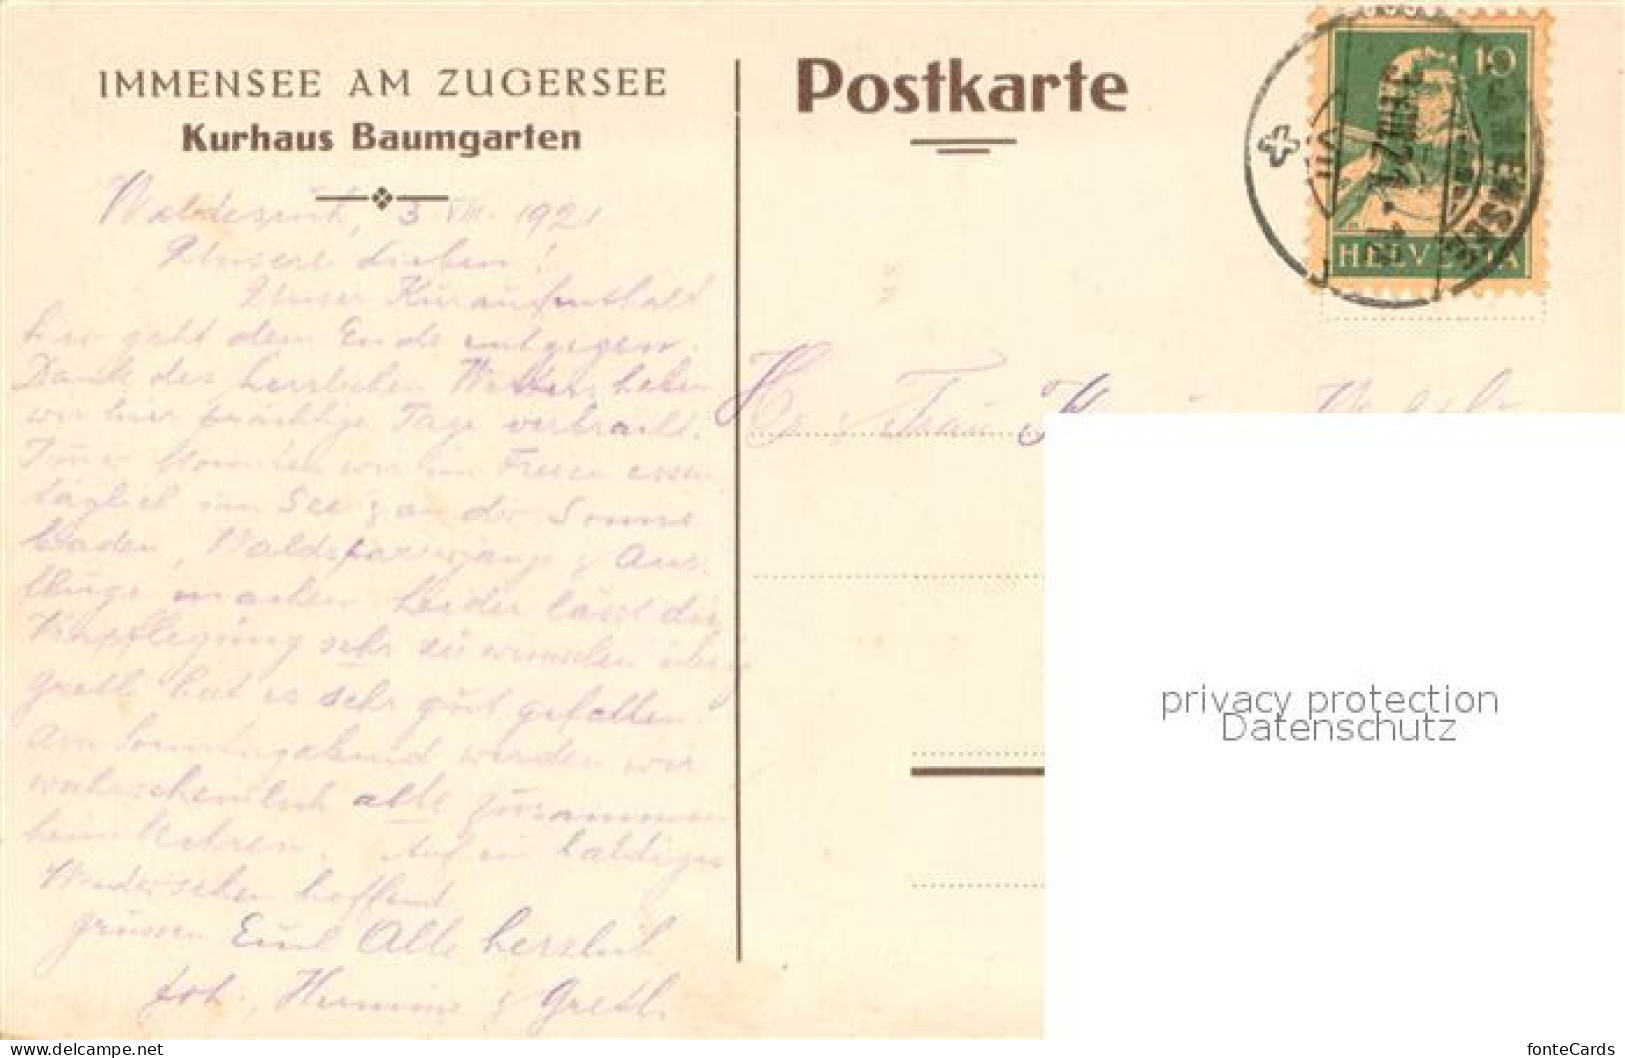 IMMENSEE AM ZUGERSEE
Kurhaus Baumgarten
3 VIII. 1921
Unsere Lieben!
Unser Kuraufenthalt
hier geht dem Ende entgegen.
Dank des herrlichen Wetters haben
wir hier prächtige Tage verbracht.
konnten wir im Freien essen,
täglich im See & an der Sonne
baden, Waldspaziergänge & Aus-
flüge machen. Leider lässt die
Verpflegung sehr zu wünschen übrig
Gretli hat es sehr gut gefallen.
Am Sonntagabend werden wir
wahrscheinlich alle zusammen
heim kehren. Auf ein baldiges
Wiedersehen hoffend
grüssen Euch Alle herzlich
Joh., Hermine & Gretli
Postkarte
10
HELVETIA
IMMENSEE
VIII
Frau
privacy protection
Datenschutz
www.delcampe.net
fonteCards